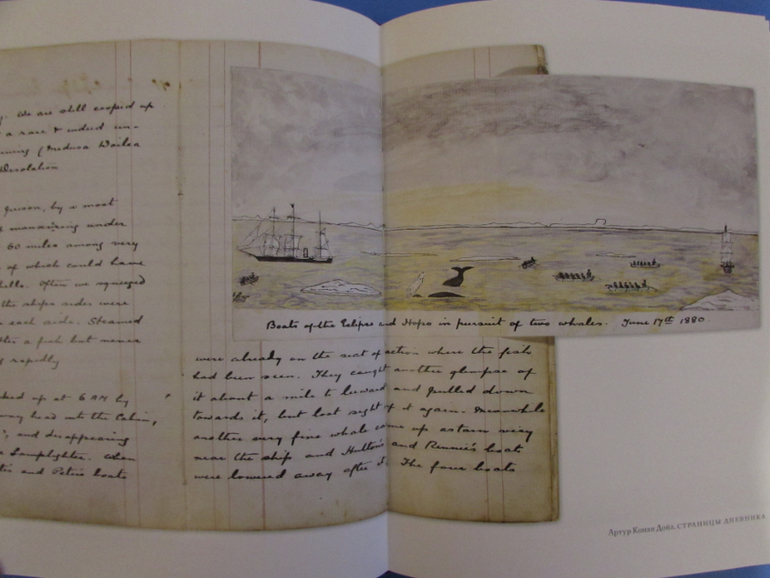 We are still cooped up
a rare & indeed un-
Desolation
person, by a most
manoeuvring under
60 miles among very
of which could have
Often we squeezed
the ships sides were
each side. Steamed
after a fish but never
rapidly
up at 6 AM by
head into the Cabin,
and disappearing
Lamplighter. When
and Peters boats
Boats of the Eclipse and Hope in pursuit of two whales. June 17th 1880.
were already on the seat of action where the fish
had been seen. They caught another glimpse of
it about a mile to leeward and pulled down
towards it, but lost sight of it again. Meanwhile
another very fine whale came up astern very
near the ship and Hulton's and Rennie's boat
were lowered away after it. The four boats
Артур Конан Дойл. СТРАНИЦЫ ДНЕВНИКА